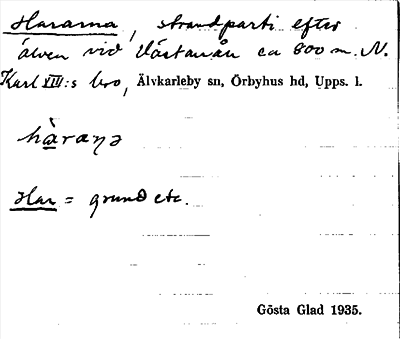 Hararna, strandparti efter
älven vid Västanån ca 800 m. N.
Karl XIII:s bro, Älvkarleby sn, Örbyhus hd, Upps. l.
Har = grund etc.
Gösta Glad 1935.